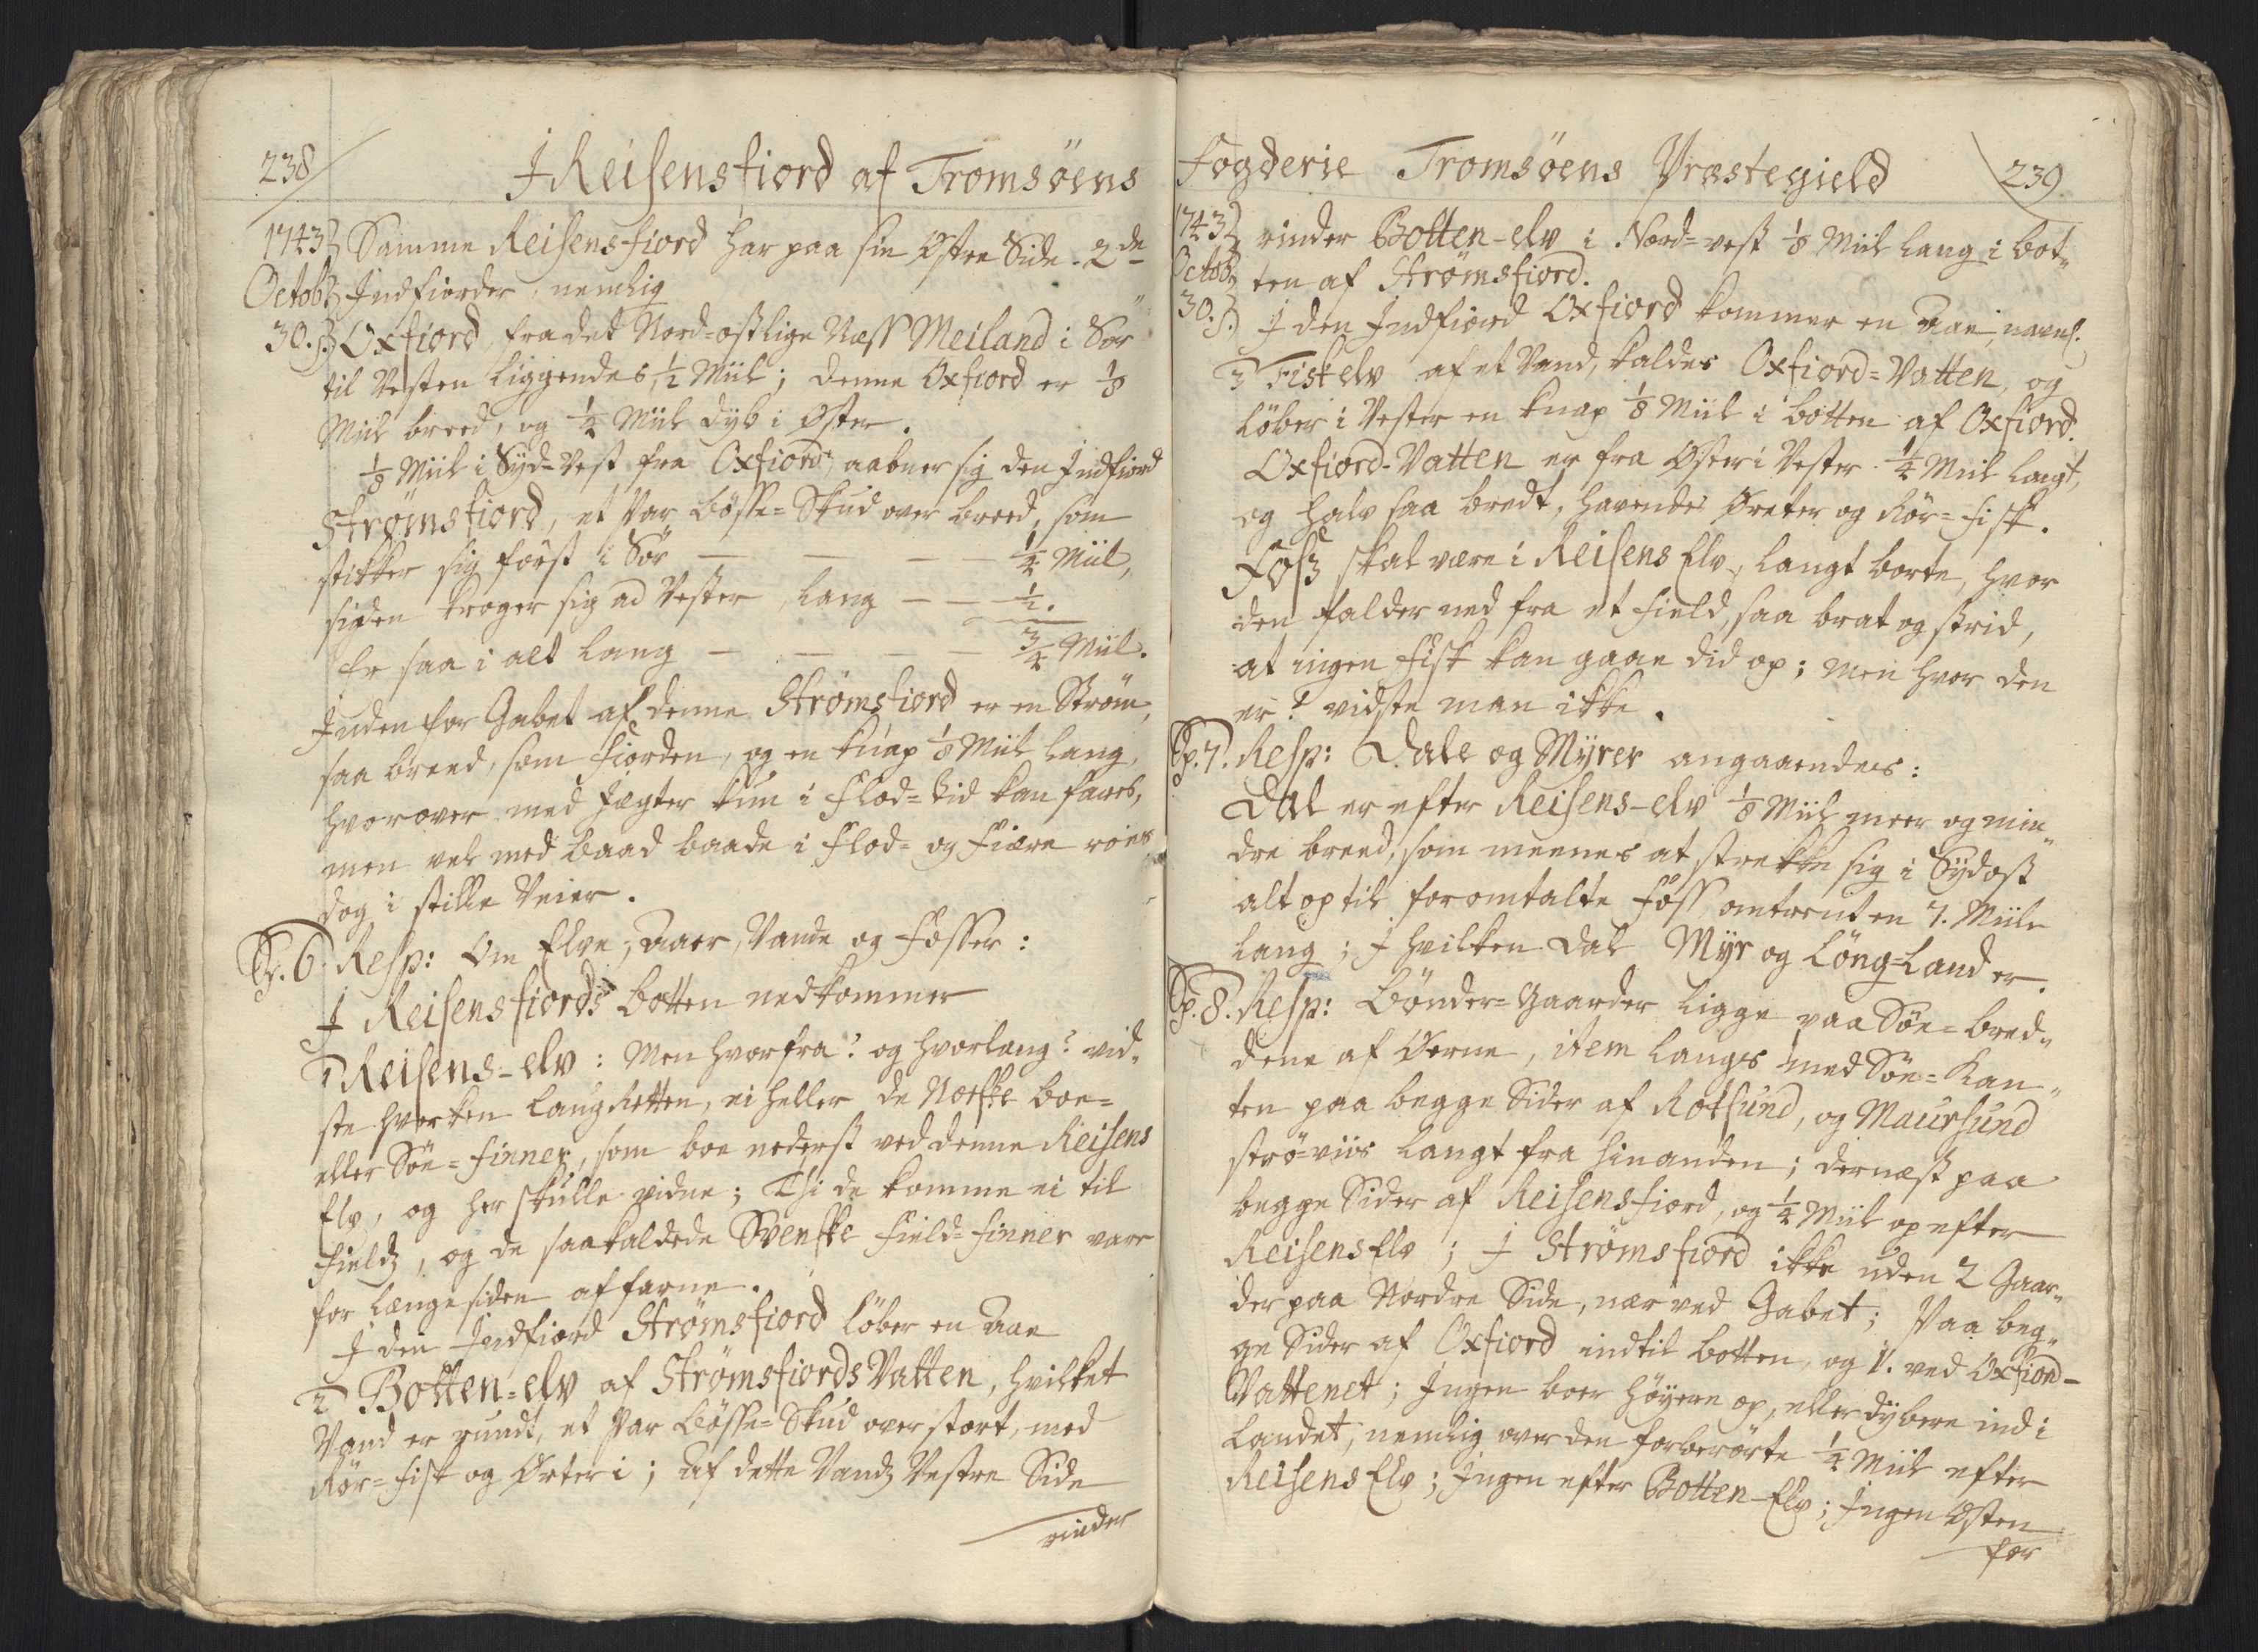 238
I Reisensfiord af Tromsöens
1743 Samme Reisensfiord har paa sin Östre Side 2de
Octobr Indfiorder, nemlig
30. Oxfiord, fra det Nord-ostlige Næss Meiland i Sör
til Vesten liggendes, 1/2 Miil; denne Oxfiord er 1/8
Miil breed, og 1/4 Miil dyb i Øster.
1/8 Miil i Syd-Vest fra Oxfiord, aabner sig den Indfiord
Strømsfiord, et Par Bösse-Skud over breed, som
stikker sig först i Sör — — — 1/4 Miil,
siden kroger sig ad Vester, lang — — 1/2.
Er saa i alt lang — — — 3/4 Miil.
Inden for Gabet af denne Strømsfiord er en Ström,
saa breed, som Fiorden, og en knap 1/8 Miil lang,
hvorover med Jægter kun i Flod-Tid kan fares,
men vel med Baad baade i Flod- og Fiære roes
dog i stille Veier.
Sp. 6. Resp: Om Elve, Aaer, Vande og Fosser:
I Reisensfiords Botten nedkommer
1 Reisens-elv: Men hvorfra? og hvorlang? vid-
ste hverken LaugRetten, ei heller de Norske boe-
eller Söe-Finner, som boe nederst ved denne Reisens
Elv, og her skulle vidne; Thi de komme ei til
Fields, og de saakaldede Svenske Field-Finner vare
for længe siden affarne.
I den Indfiord Strømsfiord löber en Aae
2 Botten-elv af Strømsfiords Vatten, hvilket
Vand er rundt, et Par Bösse-Skud over stort, med
Rör-Fisk og Ørter i; Af dette Vands Vestre Side
rinder
Fogderie Tromsöens Præstegield
239
1743 rinder Botten-elv i Nord-vest 1/8 Miil lang i Bot-
Octobr ten af Strømsfiord.
30. I den Indfiord Oxfiord kommer en Aae, navnl.
3 Fiskelv af et Vand, kaldes Oxfiord-Vatten, og
löber i Vester en knap 1/8 Miil i Botten af Oxfiord.
Oxfiord-Vatten er fra Øster i Vester 1/4 Miil langt,
og halv saa bredt, havendes Ørreter og Rör-Fisk.
Foss skal være i Reisens Elv, langt borte, hvor
den falder ned fra et Field, saa brat og strid,
at ingen Fisk kan gaae did op; men hvor den
er? vidste man ikke.
Sp. 7. Resp: Dale og Myrer angaaendes:
Dal er efter Reisens-elv 1/8 Miil meer og min-
dre breed, som meenes at strekke sig i Sydost
alt op til foromtalte Foss omtrent en 7. Miile
lang; I hvilken Dal Myr og Löng-Land er.
Sp. 8. Resp: Bönder-Gaarder ligge paa Söe-Bred-
dene af Öerne, item langs med Söe-Kan-
ten paa begge Sider af Rotsund, og Maursund
strö-viis langt fra hinanden; dernæst paa
begge Sider af Reisensfiord, og 1/4 Miil op efter
Reisens Elv; I Strømsfiord ikke uden 2 Gaar-
der paa Nordre Side, nær ved Gabet; Paa beg-
ge Sider af Oxfiord indtil Botten, og 1. ved Oxfiord-
Vattenet; Ingen boer höyere op, eller dybere ind i
Landet, nemlig over den forberörte 1/4 Miil efter
Reisens Elv; Ingen efter Botten-Elv; Ingen Østen
for